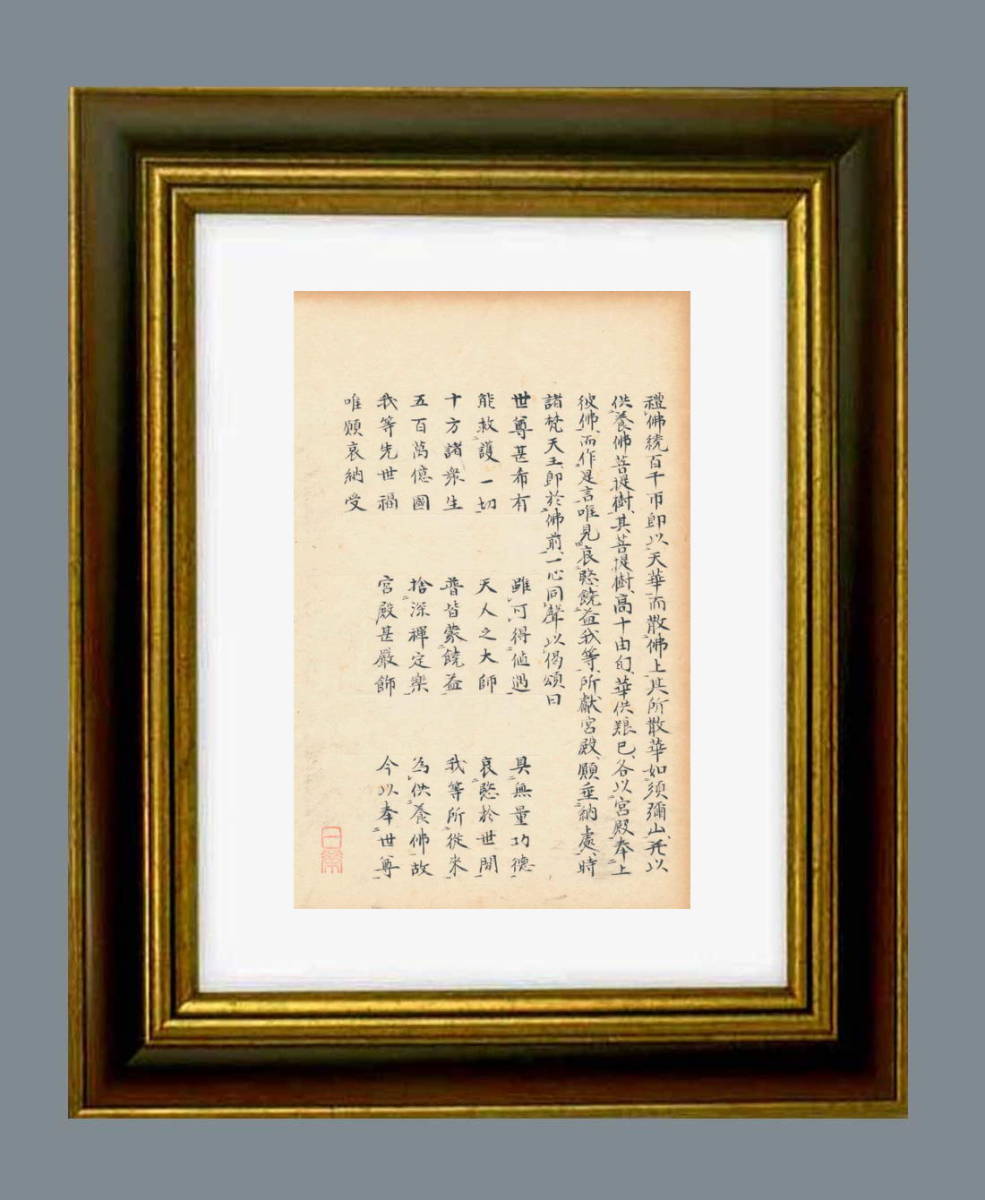 禮佛繞百千帀即以天華而散佛上其所散華如須彌山并以
供養佛菩提樹其菩提樹高十由旬華供養已各以宮殿奉上
彼佛而作是言唯見哀愍饒益我等所獻宮殿願垂納處時
諸梵天王即於佛前一心同聲以偈頌曰
世尊甚希有 難可得値遇 具無量功德
能救護一切 天人之大師 哀愍於世間
十方諸衆生 普皆蒙饒益 我等所從來
五百萬億國 捨深禪定樂 為供養佛故
我等先世福 宮殿甚嚴飾 今以奉世尊
唯願哀納受